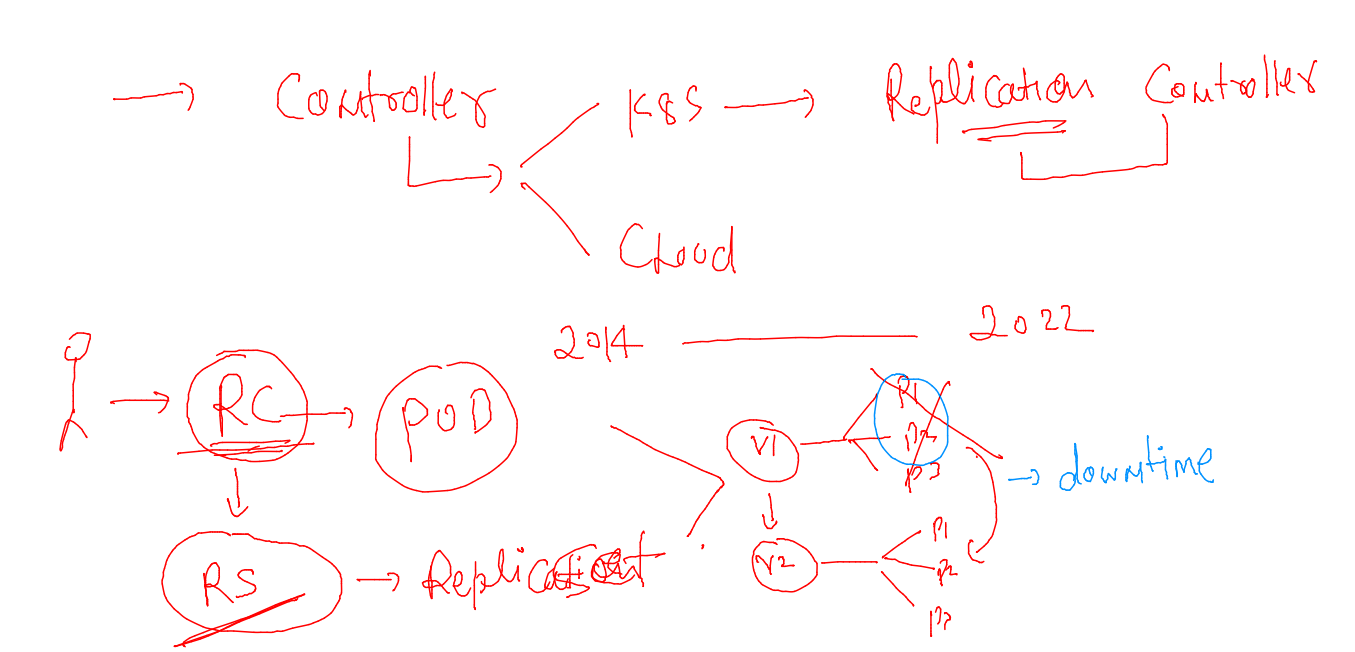 Controller
K8S
Replication Controller
Cloud
2014
2022
RC
POD
V1
P1
P2
P3
downtime
RS
V2
P1
P2